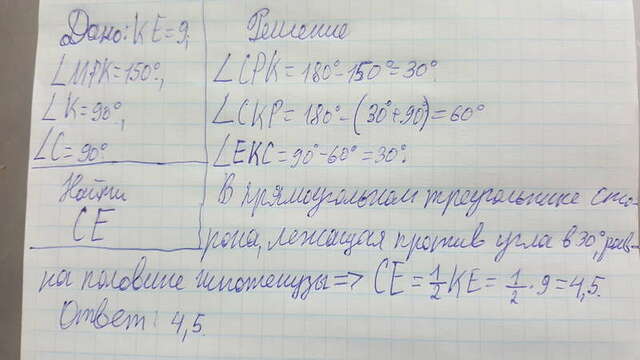 Дано: KE=9,
∠MPK=150°,
∠K=90°,
∠C=90°
Найти
CE
Решение
∠CPK=180°-150°=30°
∠CKP=180°-(30°+90°)=60°
∠EKC=90°-60°=30°.
В прямоугольном треугольнике сто-
рона, лежащая против угла в 30°, рав-
на половине гипотенузы => CE=½KE=½·9=4,5.
Ответ: 4,5.